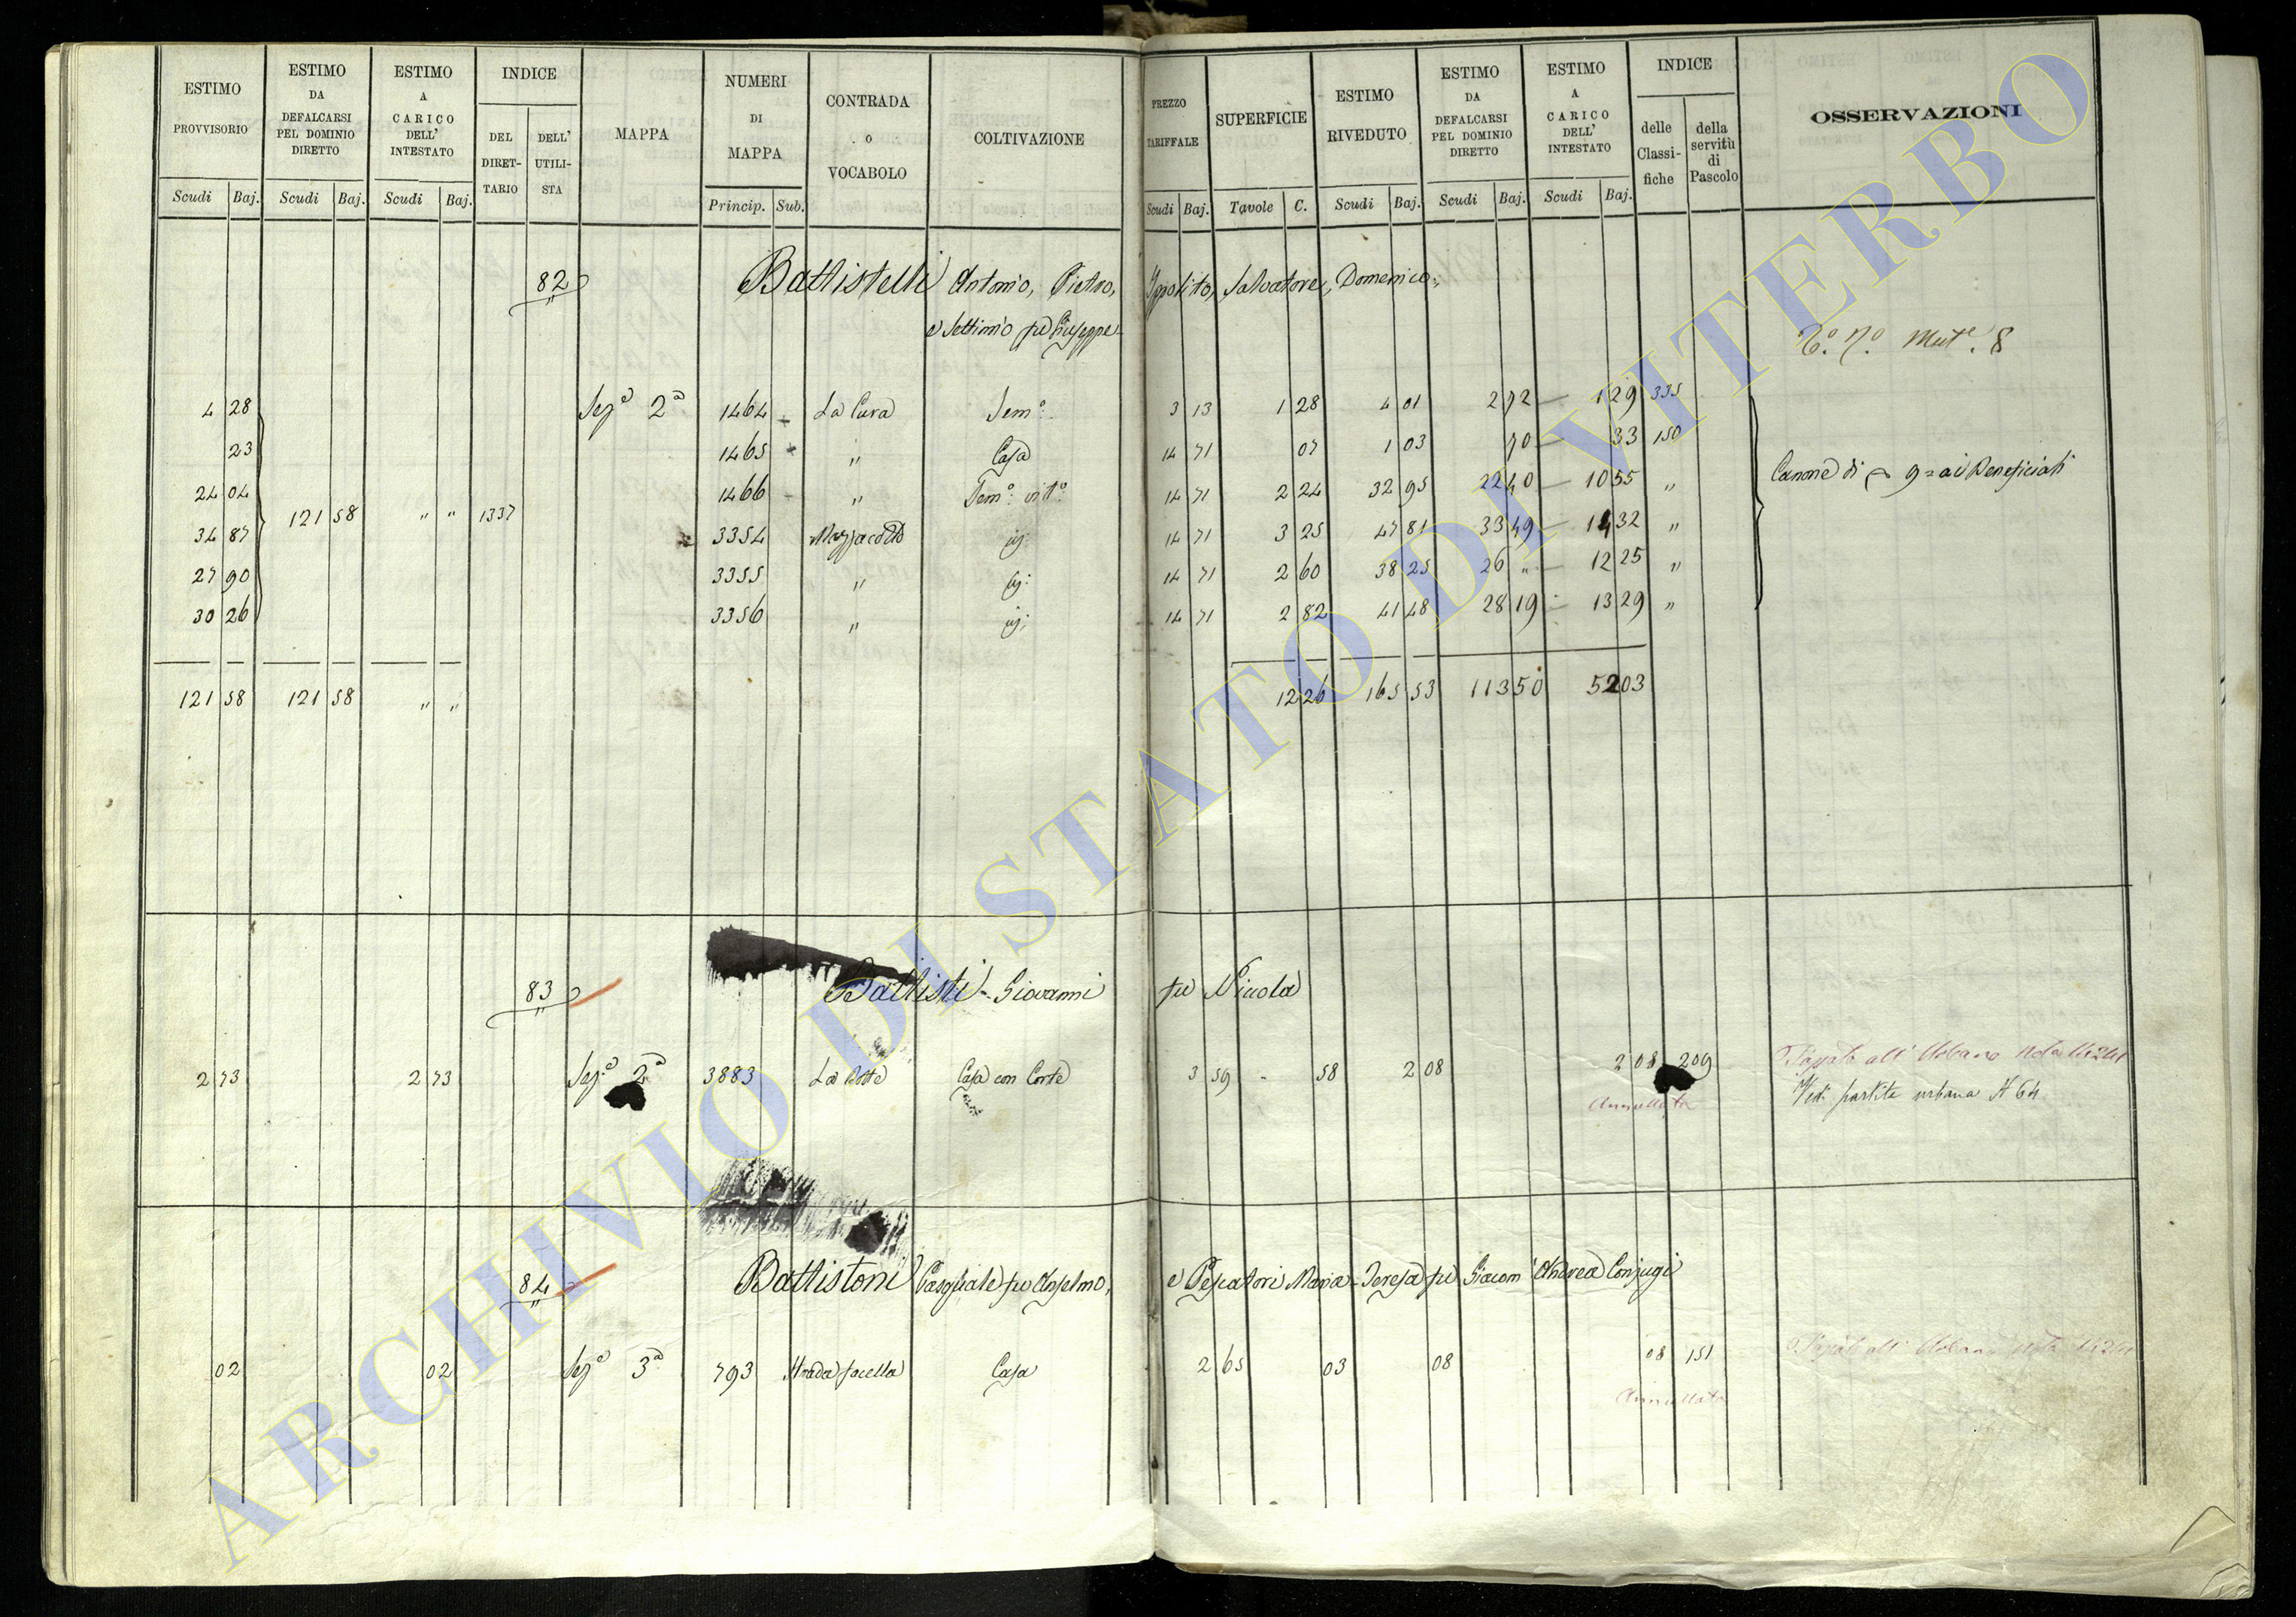 ESTIMO PROVVISORIO
Scudi Baj.
ESTIMO DA DEFALCARSI PEL DOMINIO DIRETTO
Scudi Baj.
ESTIMO A CARICO DELL' INTESTATO
Scudi Baj.
INDICE
DEL DIRET-TARIO
DELL' UTILI-STA
MAPPA
NUMERI DI MAPPA
Princip. Sub.
CONTRADA o VOCABOLO
COLTIVAZIONE
PREZZO TARIFFALE
Scudi Baj.
SUPERFICIE
Tavole C.
ESTIMO RIVEDUTO
Scudi Baj.
ESTIMO DA DEFALCARSI PEL DOMINIO DIRETTO
Scudi Baj.
ESTIMO A CARICO DELL' INTESTATO
Scudi Baj.
INDICE
delle Classi-fiche
della servitù di Pascolo
OSSERVAZIONI
82 Battistelli Antonio, Pietro, Ippolito, Salvatore, Domenico,
e Settimio fu Giuseppe
Mut.e 8
4 28 Sez.e 2a 1464 La Cura Sem.o 3 13 1 28 4 01 2 72 1 29 335
23 1465 " Casa 14 71 07 1 03 70 33 150
24 04 1466 " Sem.o vit.o 14 71 2 24 32 95 22 40 10 55 "
Canone di 9 = ai Beneficiati
121 58 " " 1337
34 87 3354 14 71 3 25 47 81 33 49 14 32 "
27 90 3355 " 14 71 2 60 38 25 26 " 12 25 "
30 26 3356 " 14 71 2 82 41 48 28 19 13 29 "
121 58 121 58 " " 12 26 165 53 113 50 52 03
83 Battisti Giovanni fu Nicola
2 73 2 73 Sez.e 2a 3883 La Botte Casa con Corte 3 59 - 58 2 08 2 08 209
Annullata
Vedi partita urbana N 64
84 Battistoni Pasquale fu Anselmo, e Pescatori Maria Teresa fu Giacom'Andrea Conjugi
02 02 Sez.e 3a 793 Strada Casa 2 65 03 08 08 151
Annullata
ARCHIVIO DI STATO DI VITERBO